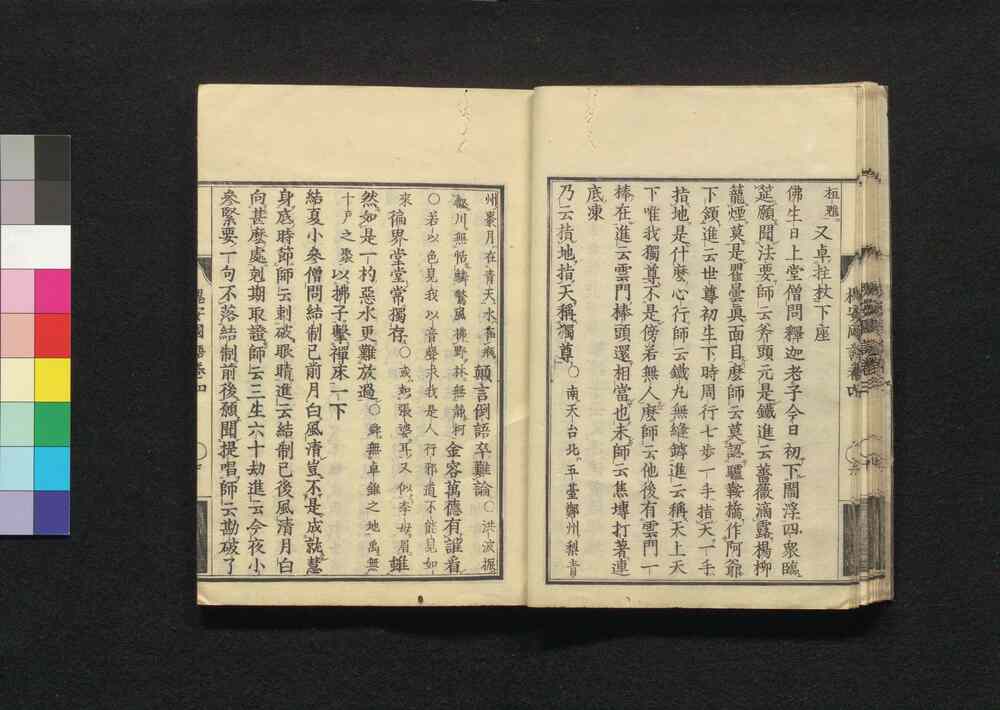 又卓拄杖下座
佛生日上堂僧問釋迦老子今日初下閻浮四衆臨
筵願聞法要師云斧頭元是鐵進云薔薇滴露楊柳
籠煙莫是瞿曇真面目麼師云莫認驢鞍橋作阿爺
下頷進云世尊初生下時周行七步一手指天一手
指地是什麼心行師云鐵丸無縫鏬進云稱天上天
下唯我獨尊不是傍若無人麼師云他後有雲門一
棒在進云雲門棒頭還相當也未師云焦塼打著連
底凍
乃云指地指天稱獨尊○南天台北五臺鄭州梨青
州棗月在青天水在瓶顛言倒語卒難論○洪波振
川無恬鱗驚風拂野林無靜柯金容萬德有誰看
○若以色見我以音聲求我是人行邪道不能見如
來徧界堂堂常獨存○或恕張婆耳又似李母眉雖
然如是一杓惡水更難放過○舜無卓錐之地禹無
十戸之聚以拂子擊禪床一下
結夏小參僧問結制已前月白風清豈不是成就慧
身底時節師云刺破眼睛進云結制已後風清月白
向甚麼處剋期取證師云三生六十劫進云今夜小
參緊要一句不落結制前後願聞提唱師云勘破了